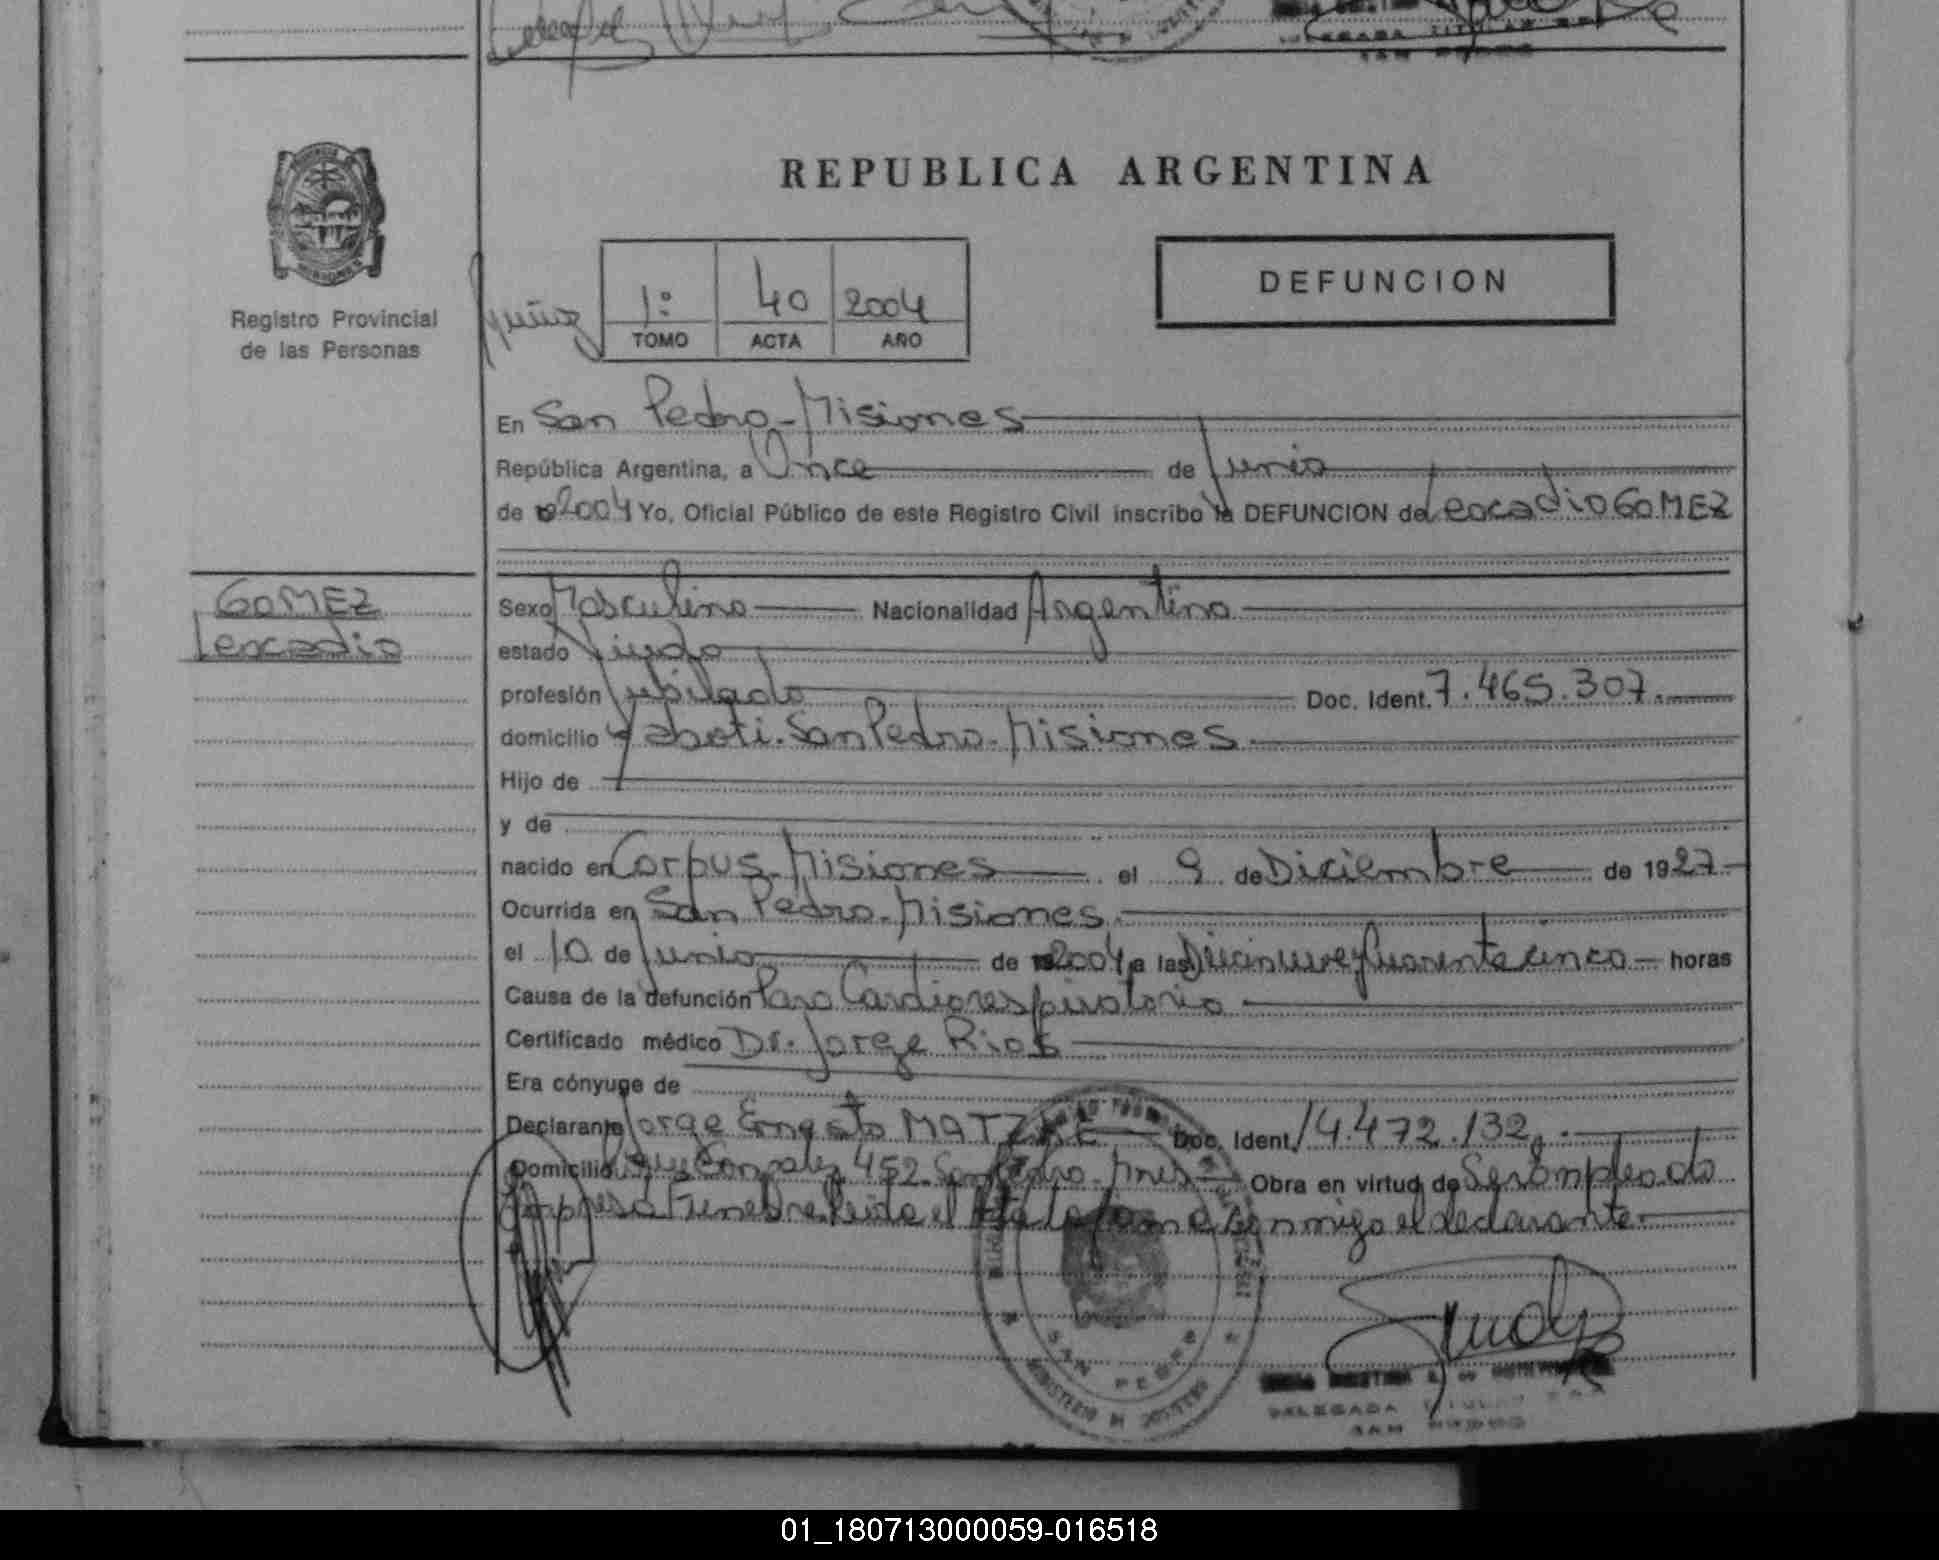 REPUBLICA ARGENTINA
Registro Provincial
de las Personas
1º 40 2004
TOMO ACTA AÑO
DEFUNCION
En San Pedro - Misiones
República Argentina, a Once de Junio
de 2004 Yo, Oficial Público de este Registro Civil inscribo la DEFUNCION de Leocadio GOMEZ
GOMEZ
Leocadio
Sexo Masculino Nacionalidad Argentino
estado Viudo
profesión Jubilado Doc. Ident. 7.465.307.
domicilio Yaboti. San Pedro. Misiones
Hijo de
y de
nacido en Corpus. Misiones el 9 de Diciembre de 1927
Ocurrida en San Pedro. Misiones.
el 10 de Junio de 2004 a las Diecinueve y Cuarenta cinco horas
Causa de la defunción Paro Cardiorespiratorio
Certificado médico Dr. Jorge Rios
Era cónyuge de
Declarante Jorge Ernesto Doc. Ident. 14.472.132
Domicilio 452. San Pedro. Mnes Obra en virtud de Ser Empleado
Empresa Funebre. Leida el Acta la firma conmigo el declarante.
SAN PEDRO
DELEGADA TITULAR
SAN PEDRO
01_180713000059-016518